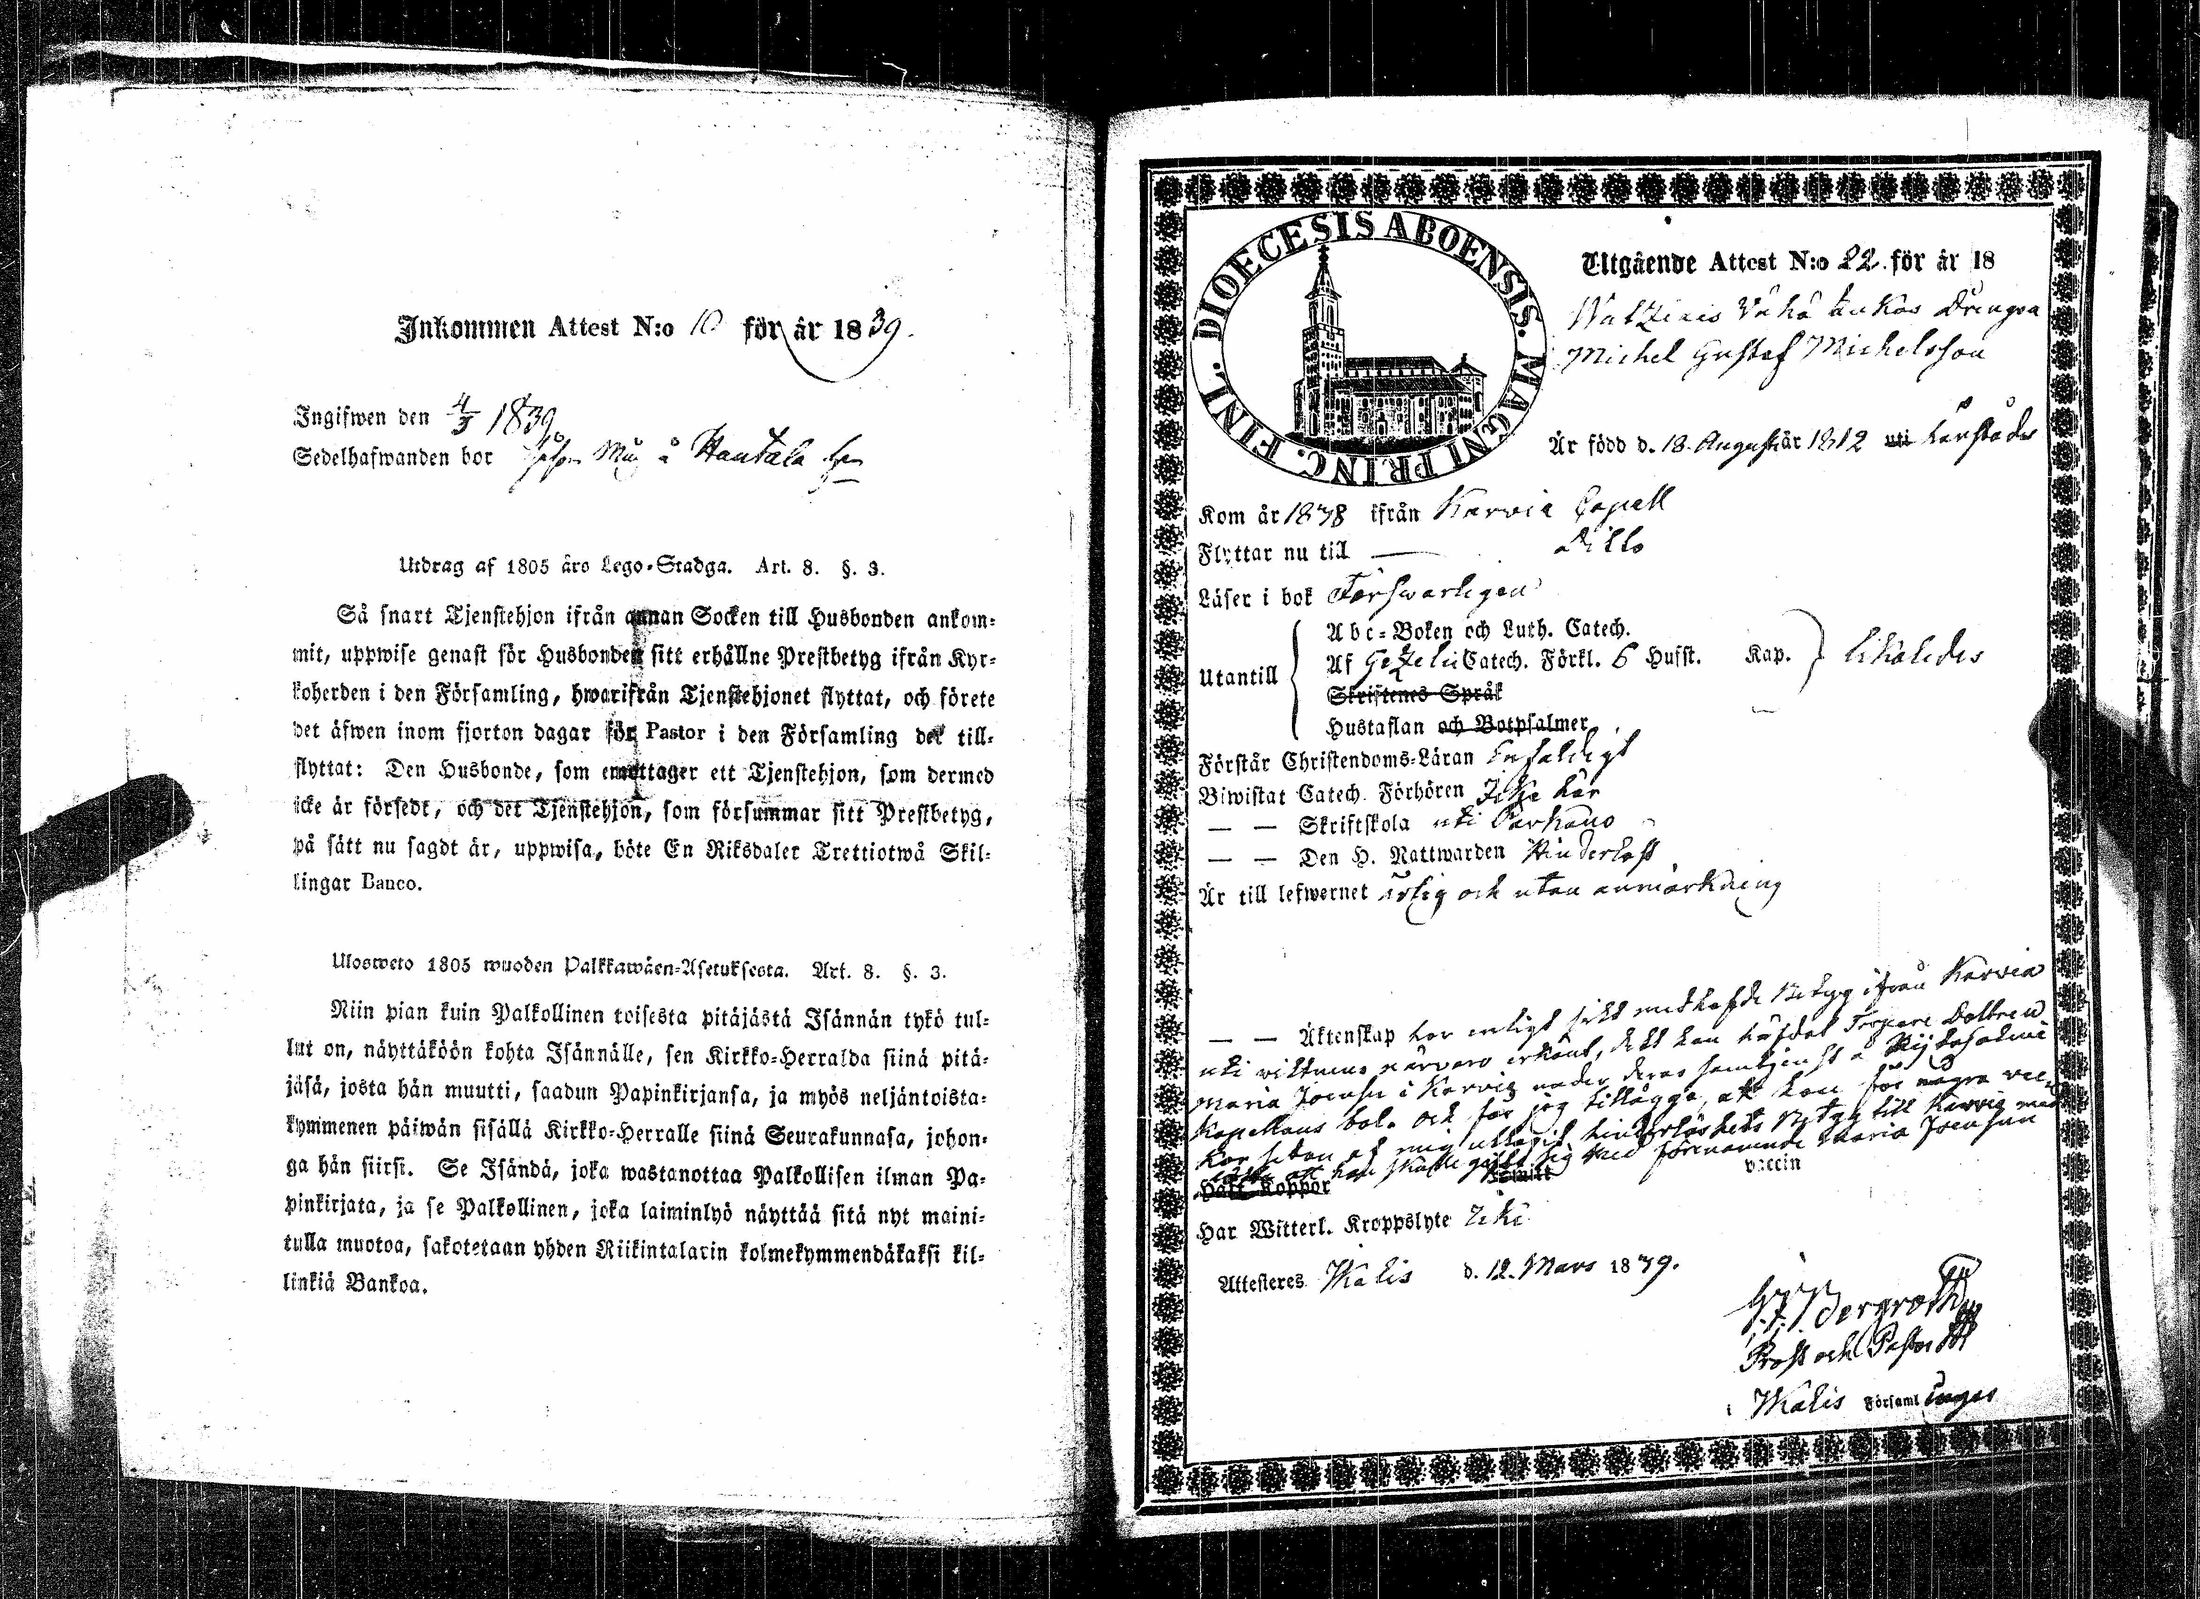 Inkommen Attest N:o 10 för år 1839.
Ingifwen den 4/3 1839
Sedelhafwanden bor å Hautala
Utdrag af 1805 års Lego-Stadga. Art. 8. §. 3.
Så snart Tjenstehjon ifrån annan Socken till Husbonden ankom-
mit, uppwise genast för Husbonden sitt erhållne Prestbetyg ifrån Kyr-
koherden i den Församling, hwarifrån Tjenstehjonet flyttat, och förete
det äfwen inom fjorton dagar för Pastor i den Församling det till-
flyttat: Den Husbonde, som emottager ett Tjenstehjon, som dermed
icke är försedt, och det Tjenstehjon, som försummar sitt Prestbetyg,
på sätt nu sagdt är, uppwisa, böte En Riksdaler Trettiotwå Skil-
lingar Banco.
Ulosweto 1805 wuoden Palkkawäen-Asetuksesta. Art. 8. §. 3.
Niin pian kuin Palkollinen toisesta pitäjästä Isännän tykö tul-
lut on, näyttäköön kohta Isännälle, sen Kirkko-Herralda siinä pitä-
jäsä, josta hän muutti, saadun Papinkirjansa, ja myös neljäntoista-
kymmenen päiwän sisällä Kirkko-Herralle siinä Seurakunnasa, johon-
ga hän siirsi. Se Isändä, joka wastanottaa Palkollisen ilman Pa-
pinkirjata, ja se Palkollinen, joka laiminlyö näyttää sitä nyt maini-
tulla muotoa, sakotetaan yhden Riikintalarin kolmekymmendäkaksi kil-
linkiä Bankoa.
DIOECESIS ABOENSIS. MAGNI PRINC. FINL.
Utgående Attest N:o 22. för år 18
Drengen
Michel Gustaf Michelsson
Är född d. 18 Augusti år 1812 uti
Kom år 1838 ifrån Karvia Capell
Flyttar nu till — Ditto
Läser i bok Försvarligen
Utantill
Abc-Boken och Luth. Catech.
Af Gezelii Catech. Förkl. 6 Hufst. Kap.
likaledes
Skriftenes Språk
Hustaflan och Botpsalmer
Förstår Christendoms-Läran Enfaldigt
Biwistat Catech. Förhören Icke här
— — Skriftskola uti Parkano
— — Den H. Nattwarden Hinderlöst
Är till lefwernet ärlig och utan anmärkning
— — Äktenskap har enligt sitt medhafde Betyg ifrån Karvia
uti vittnens närvaro erkänt, att han häfdat Torpare Dottren
Maria i Karvia under deras samtjenst å
Kapellans bol. och får jag tillägga, att han för några
sedan af mig uttagit hinderlöshets Betyg till Karvia
att han skulle gifta sig med förenämnde Maria
Haft Koppor vaccin
Har Witterl. Kroppslyte Icke
Attesteres Ikalis d. 12. Mars 1839.
Bergroth
Prost och Pastor
i Ikalis Församlinges